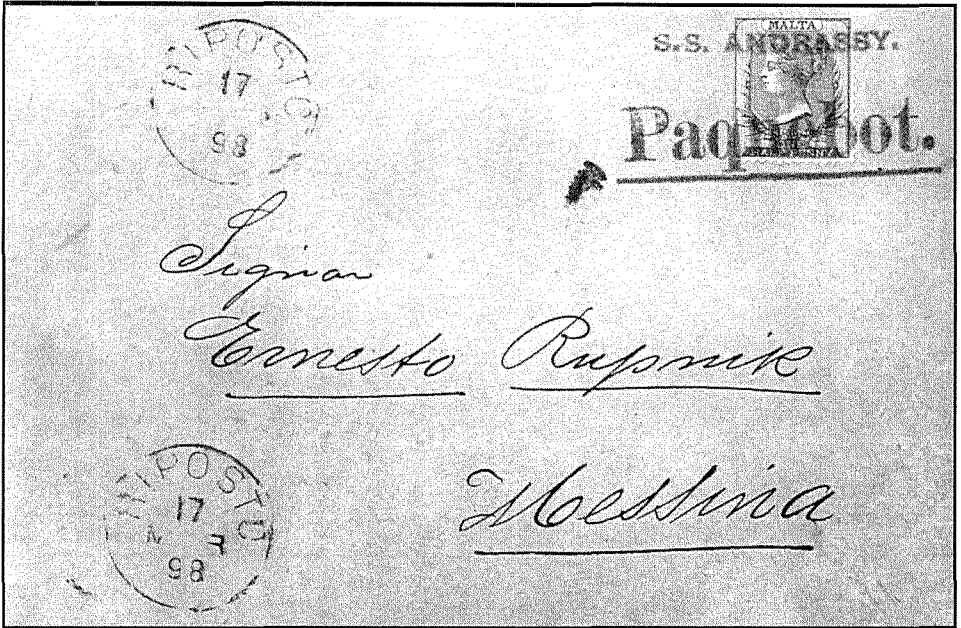 RIPOSTO
17
98
MALTA
S.S. ANDRASSY.
Paquebot.
Signor
Ernesto Rupnik
Messina
RIPOSTO
17
98